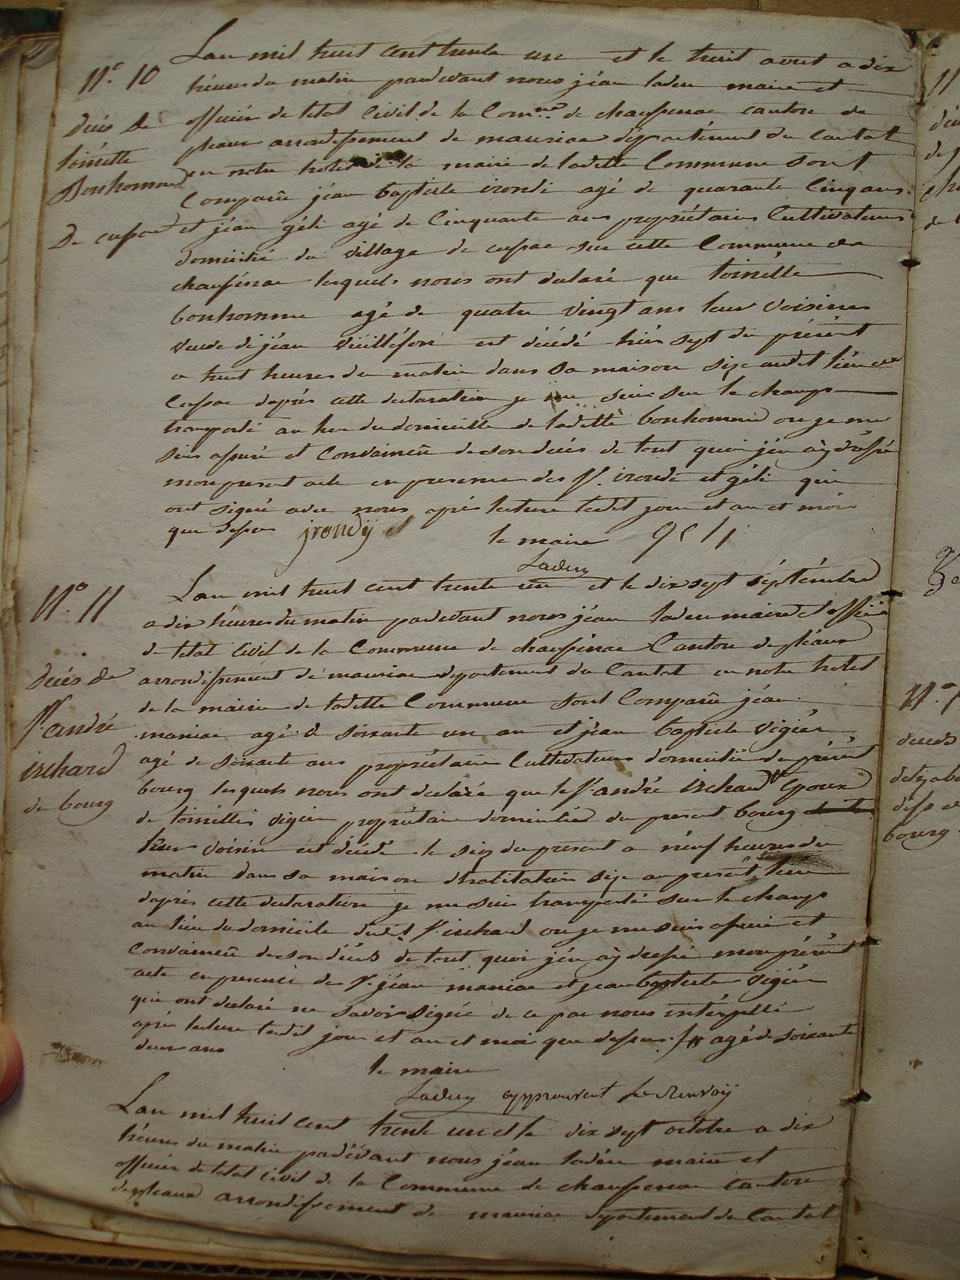 N.° 10
décès de
toinette
Bonhomme
De cussac
Lan mil huit cent trente un et le huit avut a dix
heures du matin pardevant nous jéan ladeu maire et
officier de létat Civil de la Com.ne de chaussenac canton de
pleaux arrondissement de mauriac département du Cantal
en notre hotel de la mairie de ladette Commune Sont
Comparu jéan baptiste irondi agé de quarante Cinq ans
et jéan géli agé de Cinquante ans propriétaires Cultivateurs
domicilié du village de cussac sur cette Commune de
chaussenac lesquels nous ont déclaré que toinétte
bonhomme agé de quatre vingt ans leur Voisine
veuve de jéan Vieilléfon est décédé hiér sept du présént
a huit heures du matin dans Sa maison size audit lieu de
Cussac daprés cette déclaration je me suis Sur le champs
transporté au lieu du domicille de ladette bonhomme ou je me
Suis assuré et Convaincu de son décés de tout quoi jén ai drésé
mon present acte en presence des S.r irondi et géli qui
ont Signé avec nous aprés lecture ledit jour et an et mois
que dessus jrondÿ
le maire géli
Ladeu
N.° 11
décés de
S.r andré
irchard
du bourg
Lan mil huit cent trente un et le dix sept séptémbre
a dix héures du matin pardevant nous jéan ladeu maire et officiér
de létat Civil de la Commune de chaussenac Canton de pléaux
arrondissement de mauriac departement du Cantal en notre hotel
de la mairie de ladette Commune Sont Comparu jéan
maniac agé de soixante un an et jéan baptiste vigier
agé de Soixante ans propriétaire Cultivateurs domicilié du présént
bourg lesquels nous ont declaré que le S.r andré irchard # Epoux
de toinette vigier propriétaire domicilié du present bourg
leur voisin est décédé le siez du present a néuf heures du
matin dans sa maison dhabitation size au présént liéu
daprés cette declaration je me suis transporté sur le champs
au liéu du domicile dudit S.r irchard ou je me suis assuré et
Convaincu de son décés de tout quoi jén ai dressé mon présént
acte en presence de S.r jéan maniac et jean baptiste vigiér
qui ont declaré ne Savoir Signér de ce par nous intérpéllé
aprés lecture ledit jour et an et moi que dessus # agé de soixante
deux ans
le maire
Ladeu approuvent le Renvoÿ
Lan mil huit cent trente un et le dix sept octobre a dix
héures du matin pardévant nous jéan ladéu maire et
officiér de létat civil de la Commune de chaussenac canton
de pleaux arrondissement de mauriac departement du Cantal